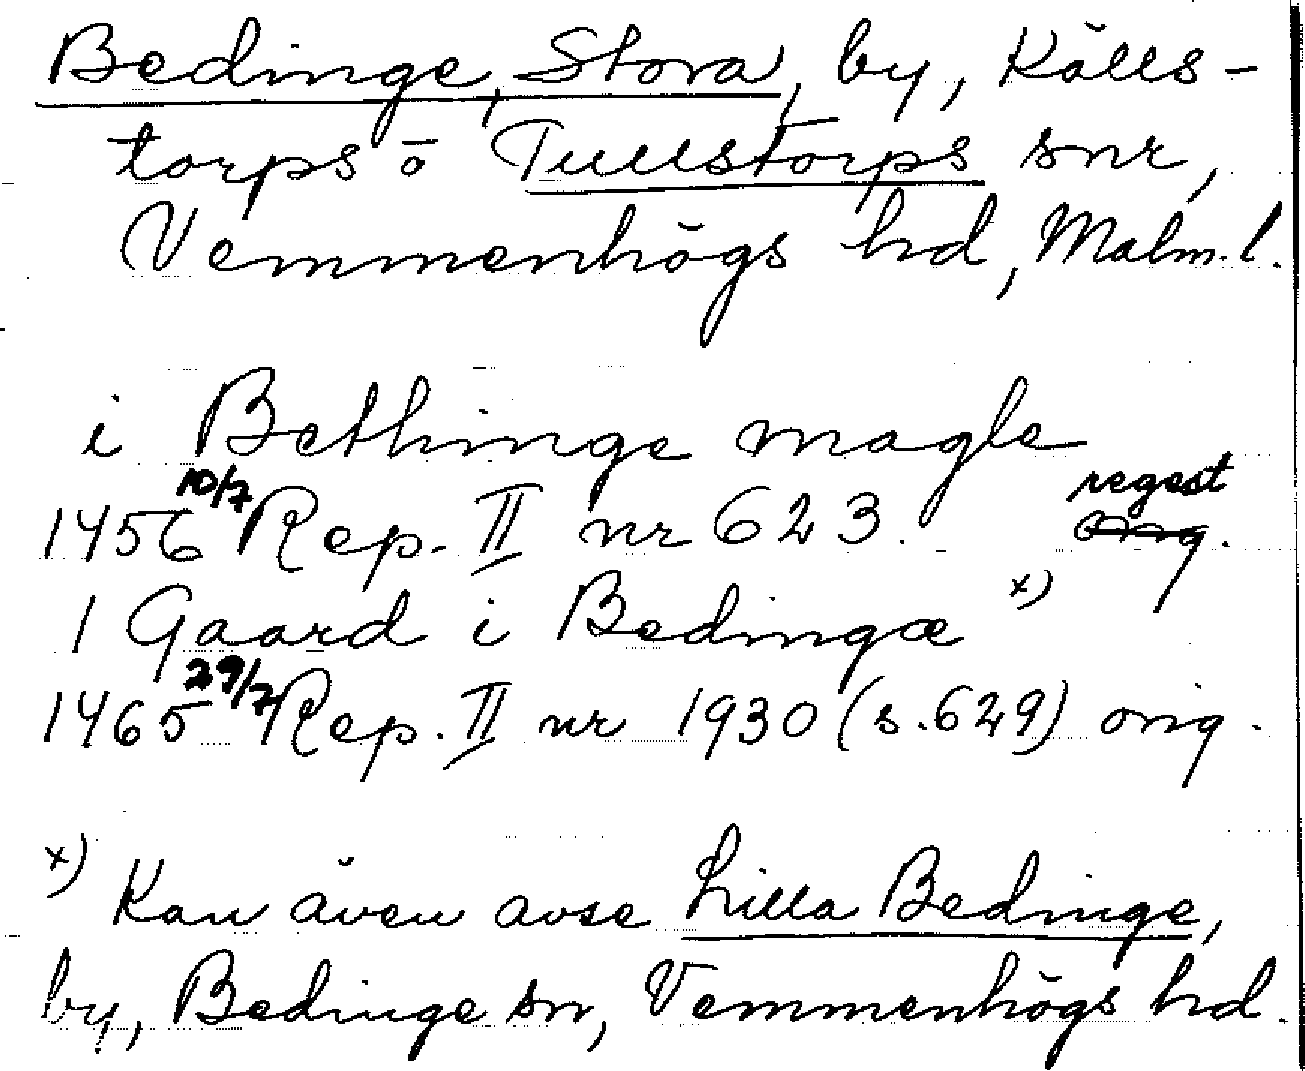 Bedinge, Stora, by, Källs-
torps o Tullstorps snr,
Vemmenhögs hd, Malm. l.
i Bethinge magle
regest
1456 10/7 Rep. II nr 623. orig.
1 Gaard i Bedingæ x)
1465 29/7 Rep. II nr 1930 (s. 629) orig.
x) Kan även avse Lilla Bedinge,
by, Bedinge sn, Vemmenhögs hd.